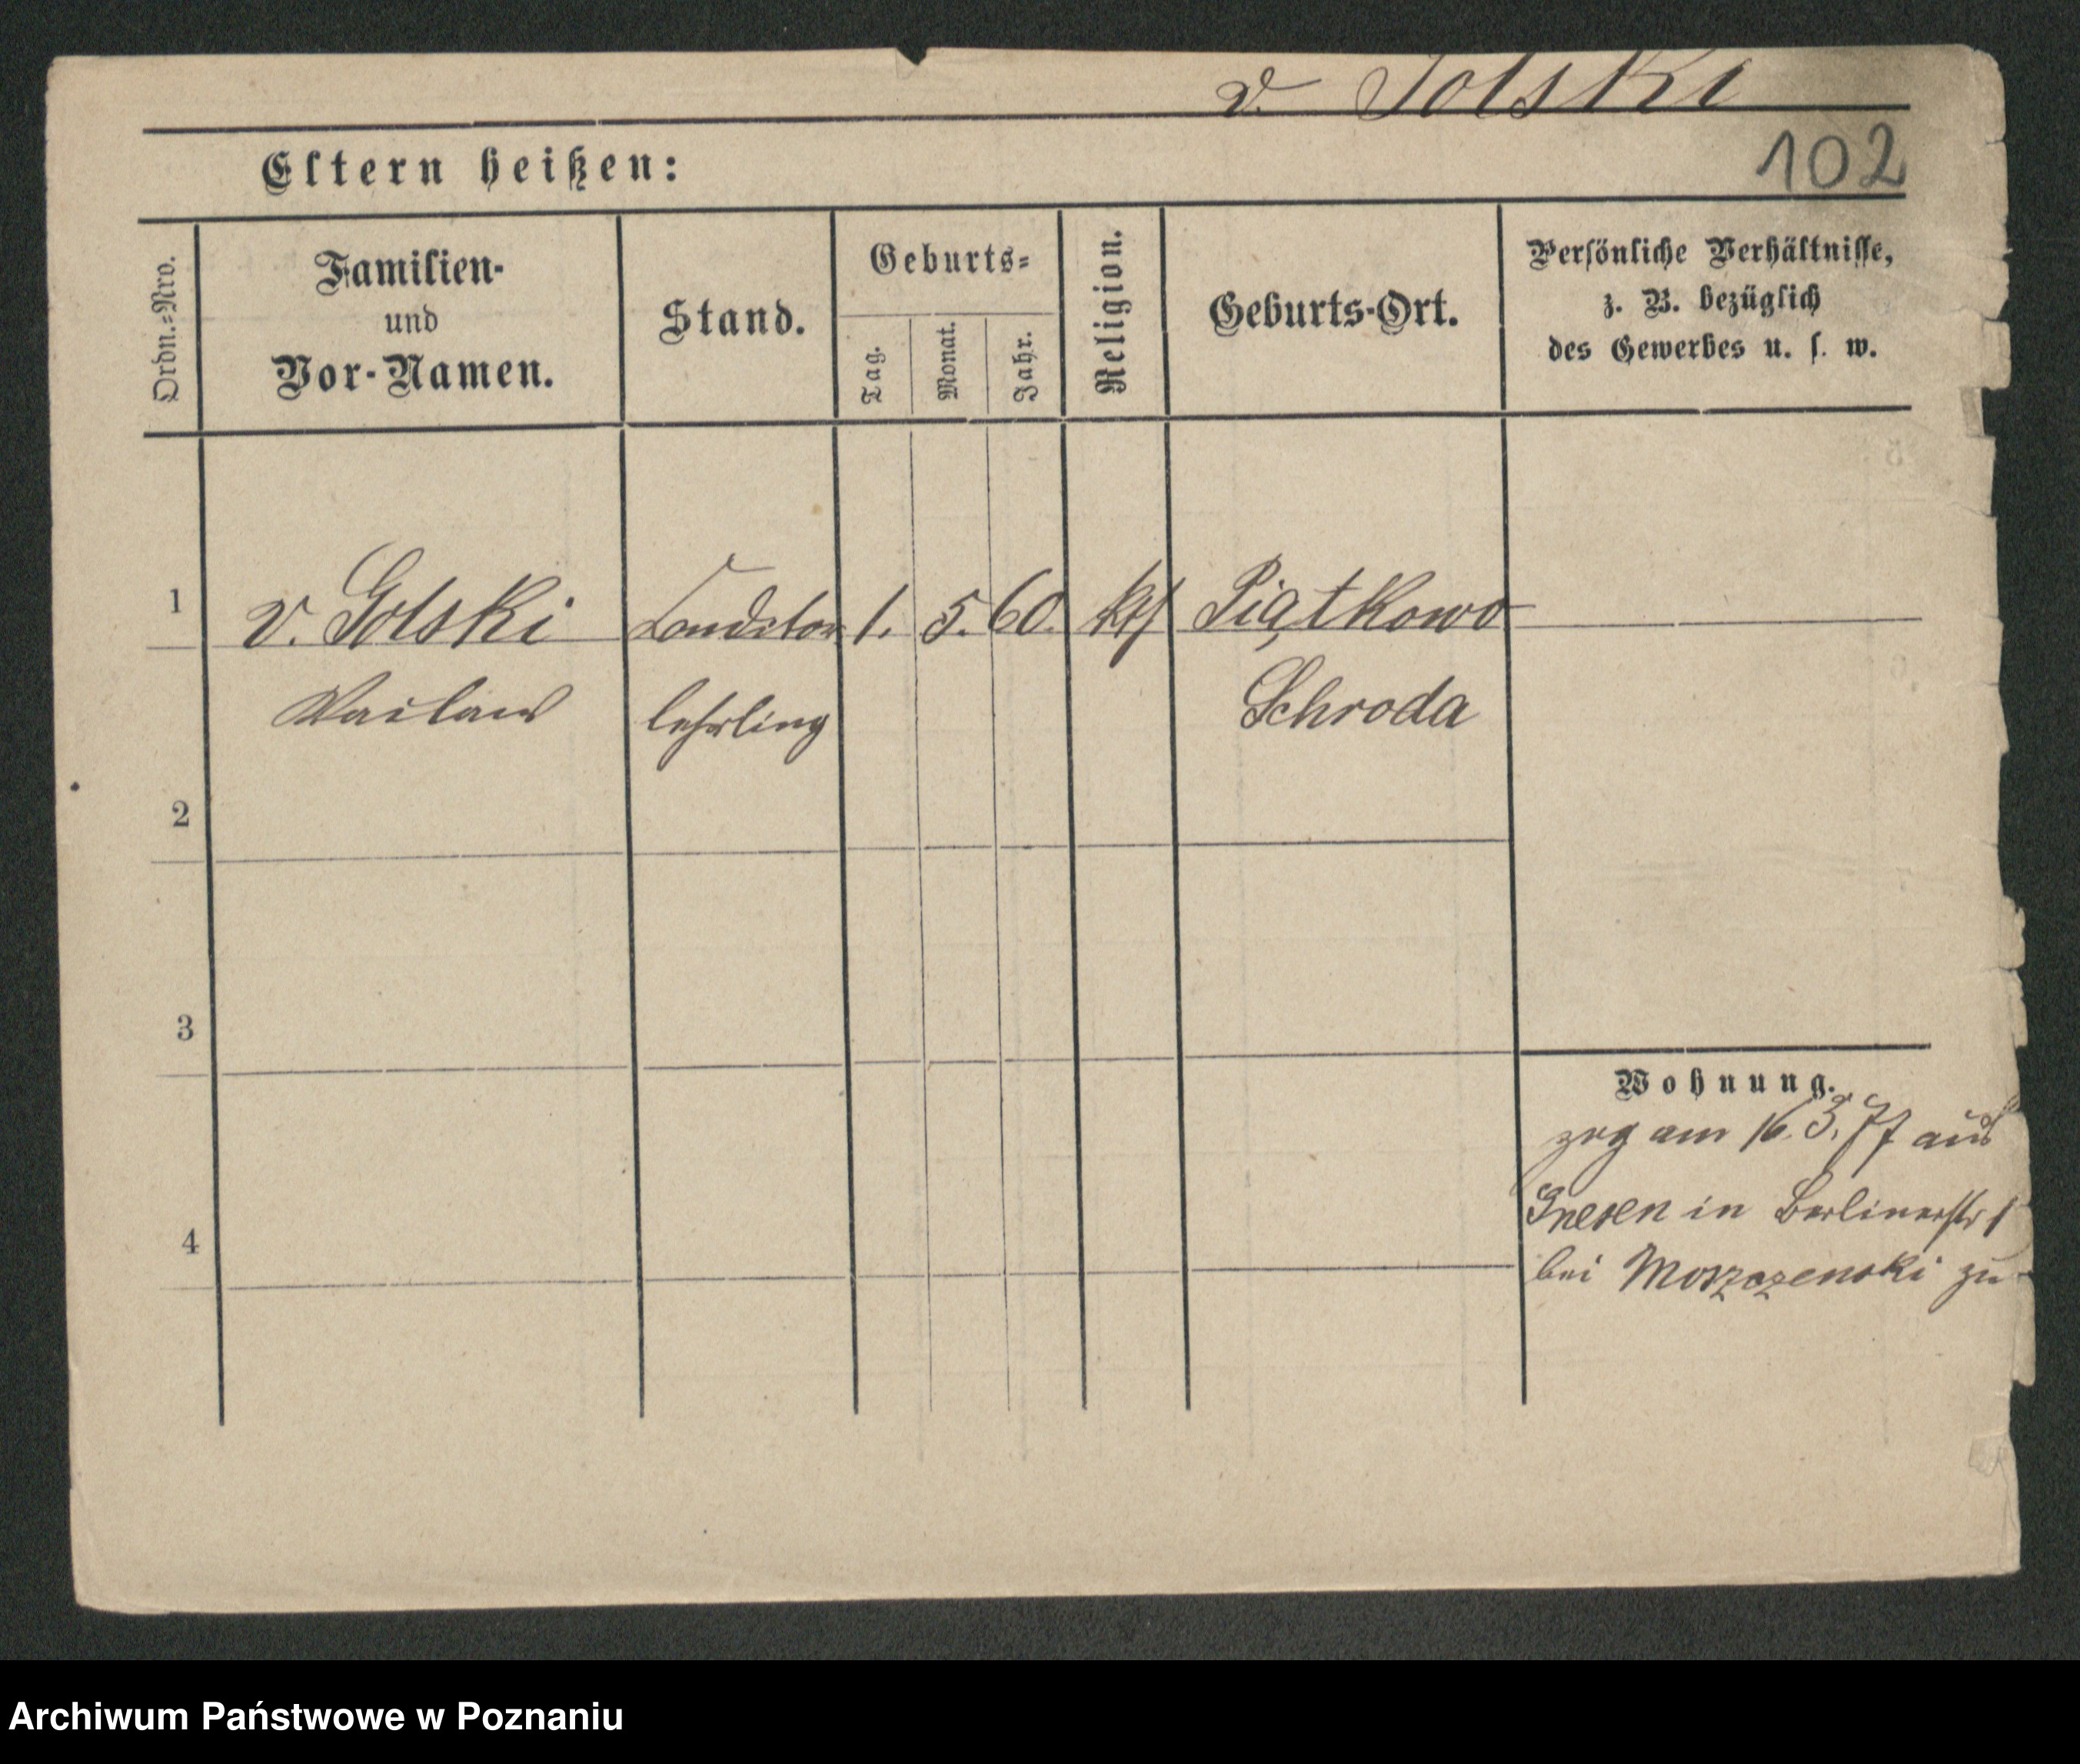 v. Golski
102
Eltern heißen:
Ordn.=Nro.
Familien-
und
Vor-Namen.
Stand.
Geburts=
Tag.
Monat.
Jahr.
Religion.
Geburts-Ort.
Persönliche Verhältnisse,
z. B. bezüglich
des Gewerbes u. s. w.
1
v. Golski
Conditor
1.
5.
60.
kth
Piątkowo
Waclaw
lehrling
Schroda
2
3
4
Wohnung.
zog am 16. 3. 77 aus
Gnesen in Berlinerstr 1
bei Moszczenski zu
Archiwum Państwowe w Poznaniu